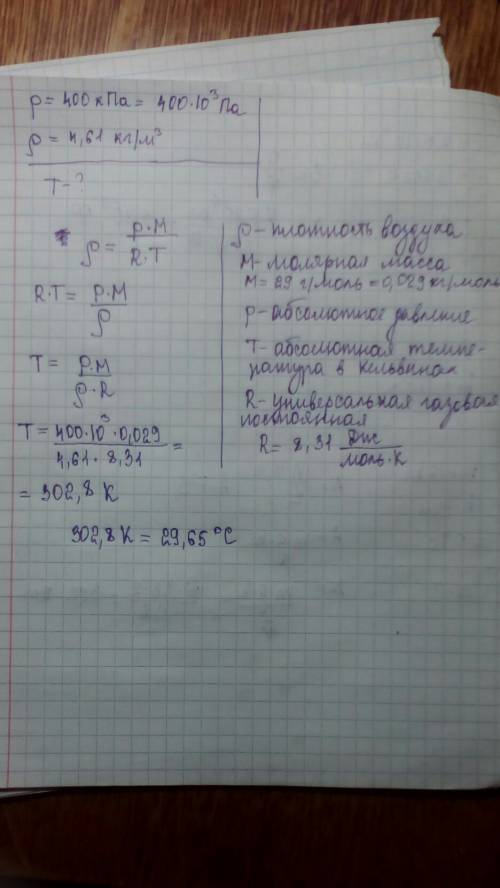 p = 400 кПа = 400·10³ Па
ρ = 4,61 кг/м³
T - ?
ρ = p·M / R·T
R·T = p·M / ρ
T = p·M / ρ·R
T = 400·10³·0,029 / 4,61·8,31 =
= 302,8 K
302,8 K = 29,65 °C
ρ - плотность воздуха
M - молярная масса
M = 29 г/моль = 0,029 кг/моль
p - абсолютное давление
T - абсолютная темпе-
ратура в кельвинах
R - универсальная газовая
постоянная
R = 8,31 Дж / моль·K